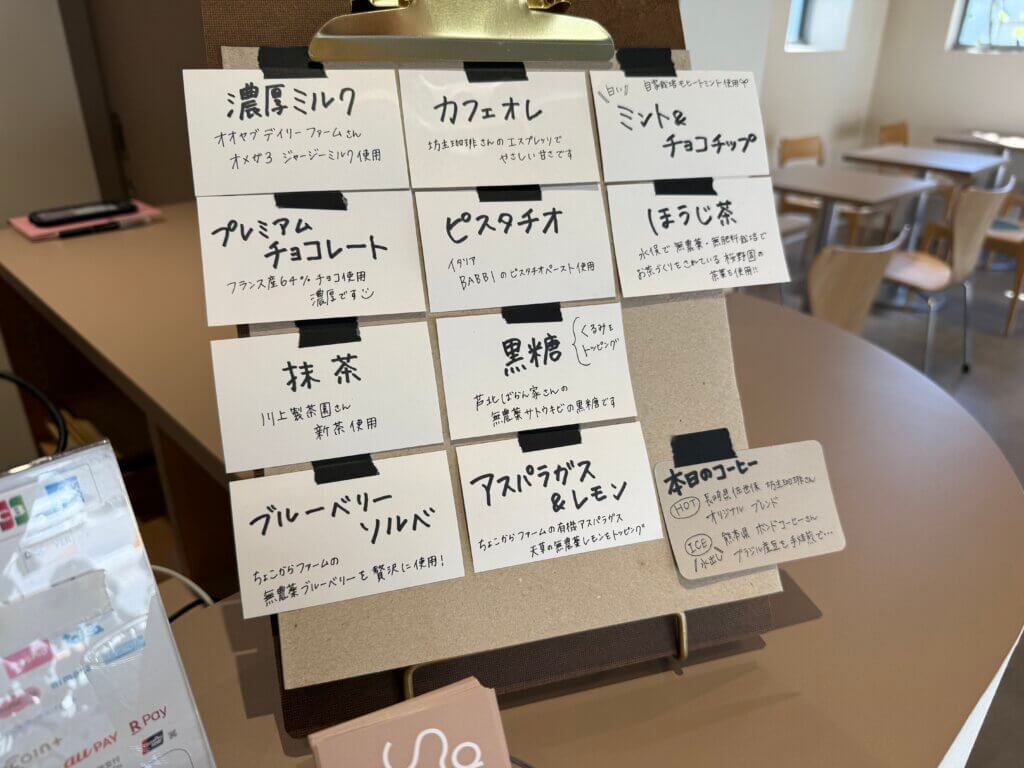 濃厚ミルク
オオヤブデイリーファームさん
オメガ3 ジャージーミルク使用
カフェオレ
坊主珈琲さんのエスプレッソで
やさしい甘さです
自家栽培モヒートミント使用
白い
ミント&
チョコチップ
プレミアム
チョコレート
フランス産64%チョコ使用
濃厚です
ピスタチオ
イタリア
BABBIのピスタチオペースト使用
ほうじ茶
水俣で無農薬・無肥料栽培で
お茶づくりをされている桜野園の
茶葉を使用!!
抹茶
川上製茶園さん
新茶使用
黒糖
くるみを
トッピング
芦北ばらん家さんの
無農薬サトウキビの黒糖です
ブルーベリー
ソルベ
ちょこからファームの
無農薬ブルーベリーを贅沢に使用!
アスパラガス
&レモン
ちょこからファームの有機アスパラガス
天草の無農薬レモンをトッピング
本日のコーヒー
HOT 長崎県佐世保 坊主珈琲さん
オリジナル ブレンド
ICE 熊本県 ポンドコーヒーさん
水出し ブラジル産豆を手焙煎で…
Coin+
au PAY
R PAY